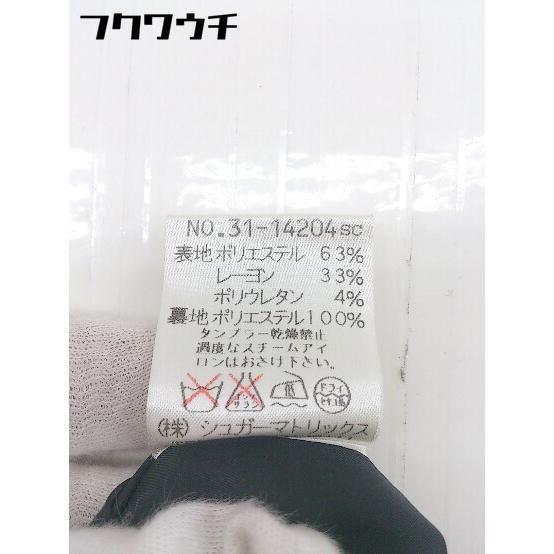 フクワウチ
NO.31-14204SC
表地ポリエステル 63%
レーヨン 33%
ポリウレタン 4%
裏地ポリエステル100%
タンブラー乾燥禁止
過度なスチームアイ
ロンはおさけ下さい。
ドライ
(株) シュガーマトリックス